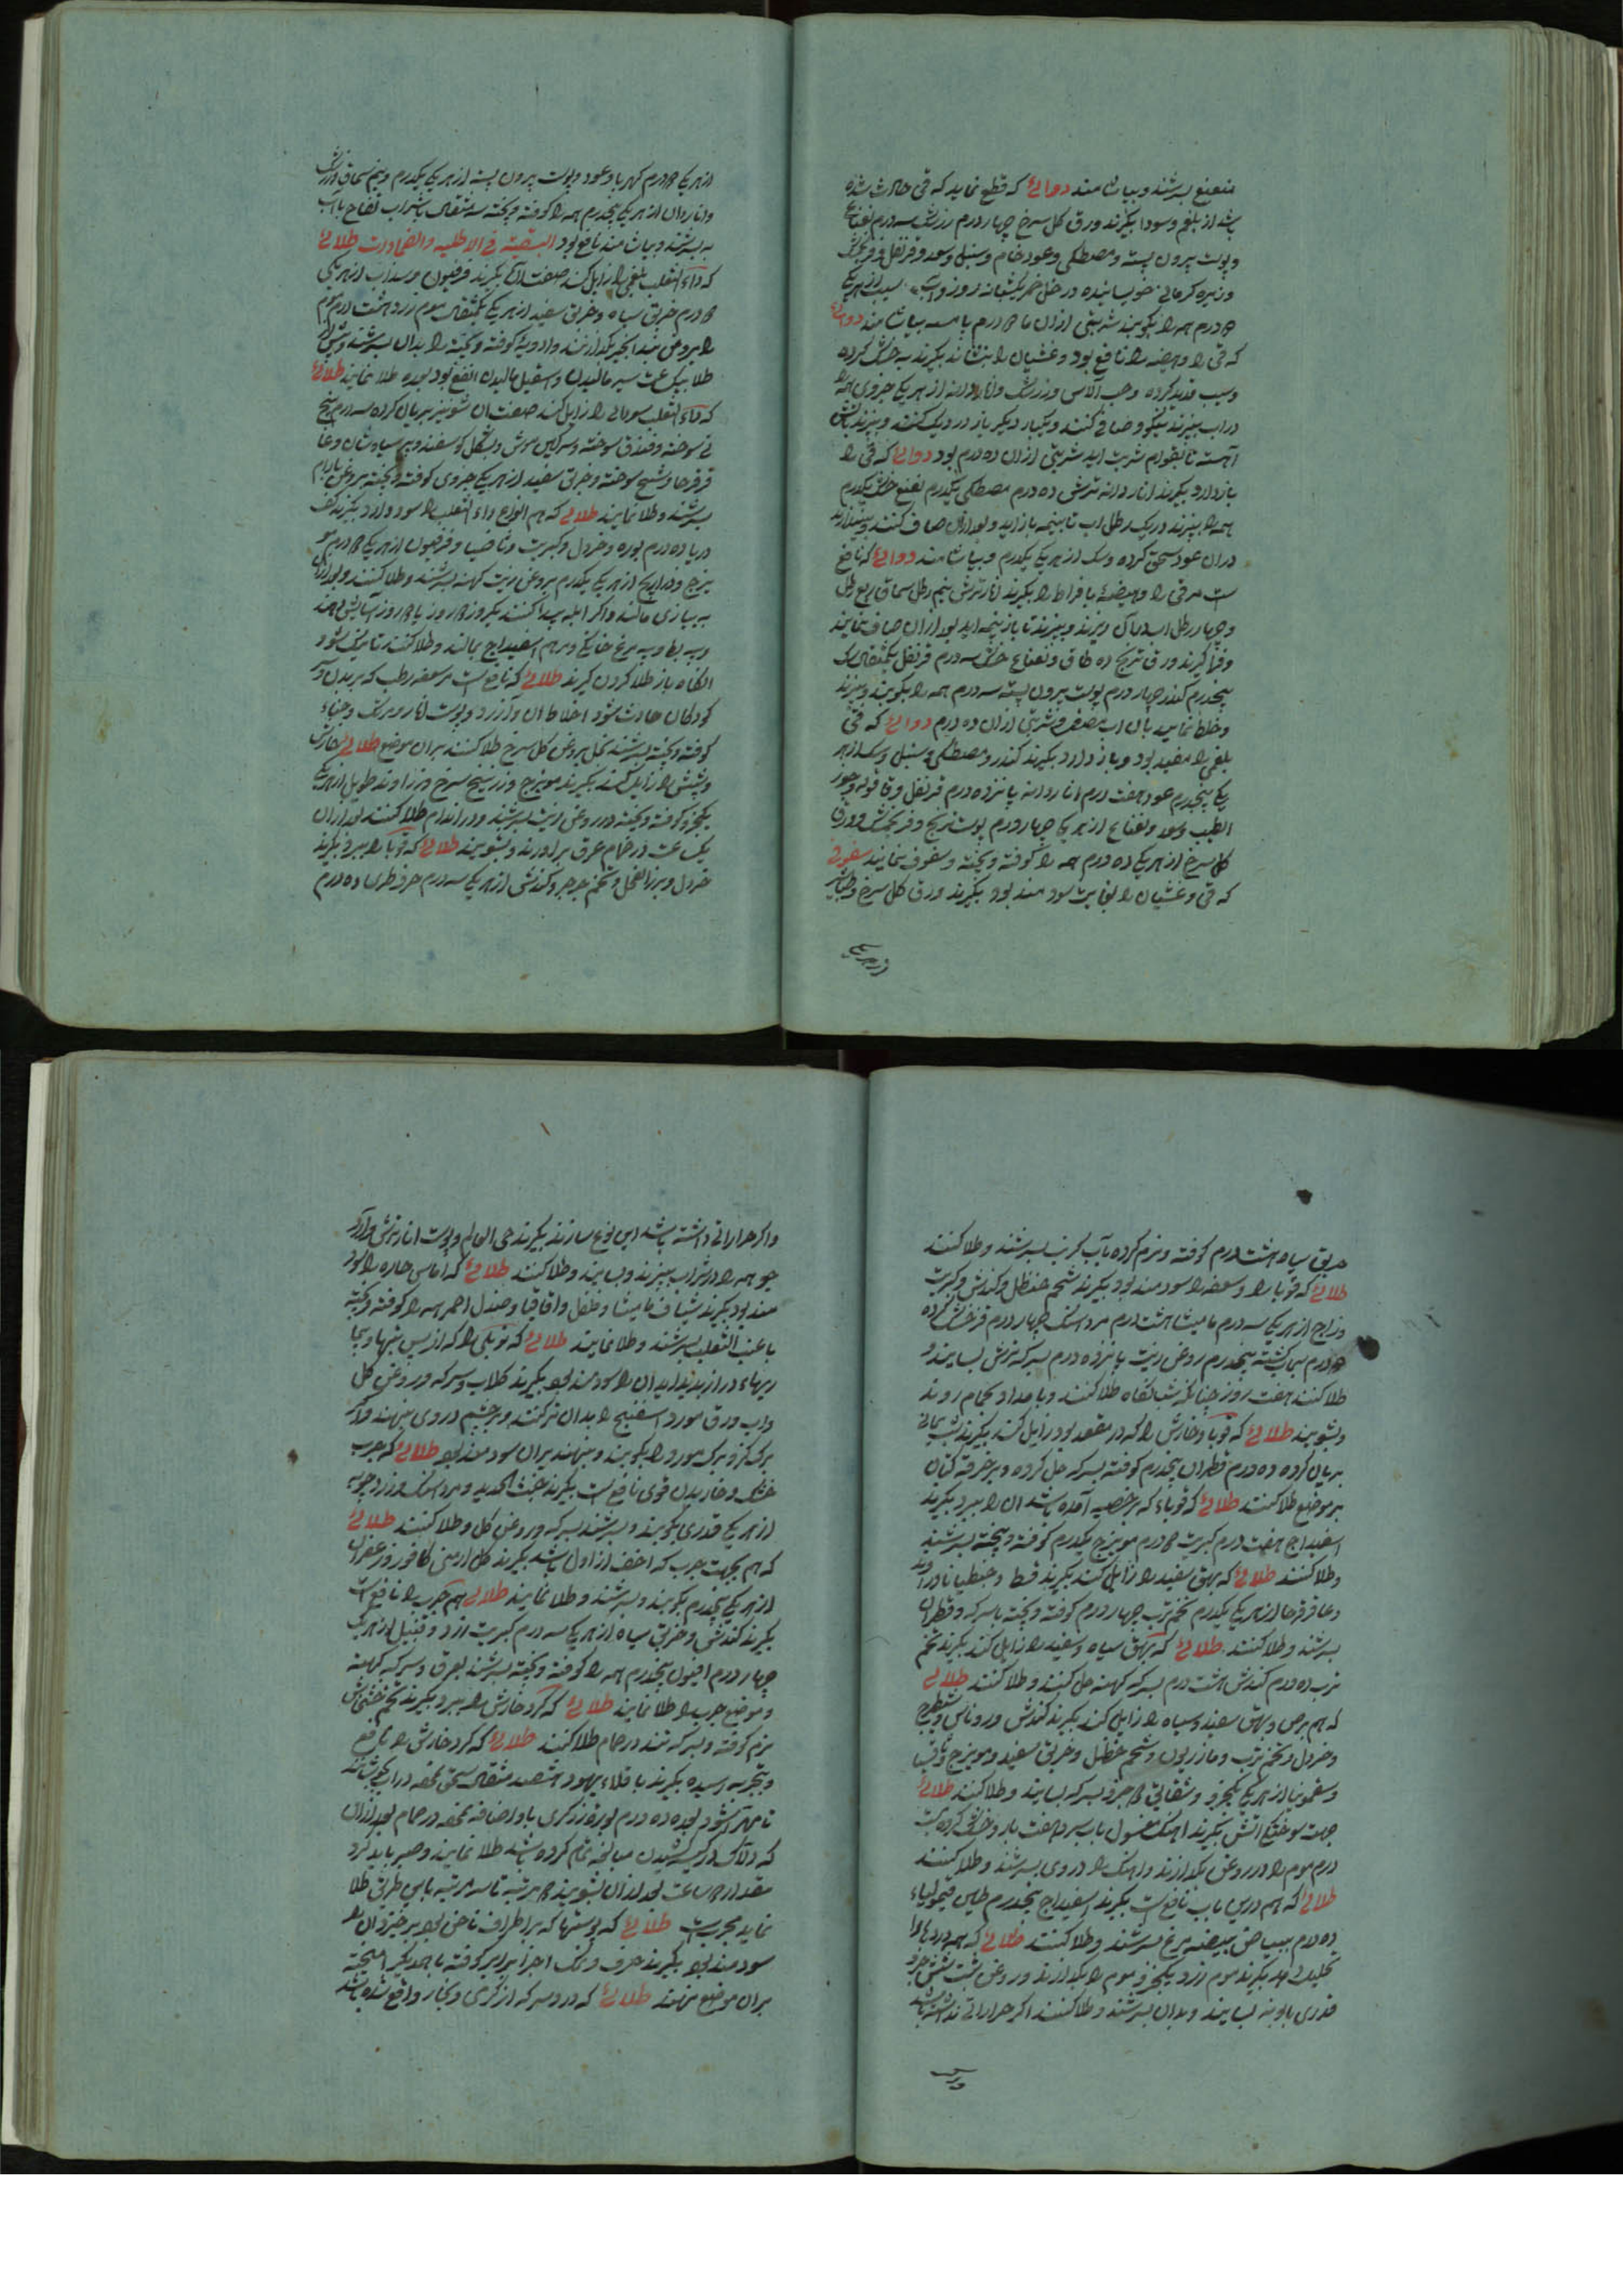 نعنع بسرشند و بیاشامند دوائے که قطع نماید که قی حادث شده
باشد از بلغم و سودا بگیرند ورق کل سرخ چهار درم زرشک سه درم نعناع
و پوست بیرون پسته و مصطکی و عود خام و سنبل و سعد و قرنفل و فرنجمشک
و زیره کرمانی خوبسانیده در خل خمر یکشبانه روز و آب سیب از هر یک
درم همه را بکوبند شربتی ازان درم با بیاشامند دوائے
که قی را و هیضه را نافع بود و غشیان را بنشاند بگیرند به خشک کرده
و سیب قدید کرده و حب الاس و زرشک و انار دانه از هر یک جزوی همه را
در اب بپزند نیکو و صافی کنند و یکبار دیکر باز در دیک کنند و بپزند باتش
آهسته تا بقوام شربت اید شربتی ازان ده درم بود دوائے که قی را
باز دارد بگیرند انار دانه ترش ده درم مصطکی یکدرم نعنع خشک یکدرم
همه را بپزند در یک رطل اب تا بنیمه باز اید و بعد ازان صاف کنند و بیندازند
دران عود سحق کرده و سک از هر یک یکدرم و بیاشامند دوائے که نافع
است مر قی را و هیضهٔ با فراط را بگیرند انار ترش نیم رطل سماق ربع رطل
و چهار رطل اب برآن ریزند و بپزند تا باز بنیمه اید بعد ازان صاف نمایند
و فرا گیرند ورق ترنج ده طاق و نعناع خشک سه درم قرنفل یکمثقال سک
پنجدرم کندر چهار درم پوست بیرون پسته سه درم همه را بکوبند و بپزند
و خلط نمایند بان اب مصفی و شربتی ازان ده درم دوائے که قی
بلغمی را مفید بود و باز دارد بگیرند کندر و مصطکی و سنبل و سک از هر
یکی پنجدرم عود هفت درم انار دانه پانزده درم قرنفل و قاقوله و جوز
الطیب و سعد و نعناع از هر یک چهار درم پوست ترنج و فرنجمشک و ورق
کل سرخ از هر یک ده درم همه را کوفته و بیخته و سفوف نمایند سفوفی
که قی و غشیان را بغایت سودمند بود بگیرند ورق کل سرخ و طباشیر
از هر یکی
از هر یک درم کهربا و عود و پوست بیرون پسته از هر یکی یکدرم و نیم سماق و زرشک
و انار دان از هر یک پنجدرم همه را کوفته و بیخته سه مثقال باشراب تفاح یا اب
به بسرشند و بیاشامند نافع بود البقیته فی الاطلیه و الضمادات طلائے
که داء الثعلب بلغمی را زایل کند صفت آن بگیرند فرفیون و سذاب از هر یکی
درم خربق سیاه و خربق سفید از هر یک یکمثقال موم زرد هشت درم موم
را بروغن بید انجیر بکدازند و ادویه کوفته و بیخته را بدان بسرشند و پیش از
طلا بیکساعت سیر مالیدن و اسقیل مالیدن انفع بود بعده طلا نمایند طلائے
که داء الثعلب سودائی را زایل کند صفت ان شونیز بریان کرده سه درم بیخ
نی سوخته و فندق سوخته و سرکین موش و پشکل کوسفند و پر سیاوشان و عا
قرقرحا و شیح سوخته و خربق سفید از هر یک جزوی کوفته و بیخته بروغن بادام
بسرشند و طلا نمایند طلائے که هم انواع داء الثعلب را سود دارد بگیرند کف
دریا ده درم بوره و خردل و کبریت و ثافسیا و فرفیون از هر یک درم مو
یزج و ذراریح از هر یک یکدرم بروغن زیت کهنه بسرشند و طلا کنند و بعد ازان
به پیازی مالند و اکر ابله پیدا کنند یکروز یا روز آسایش دهند
و پیه بط و پیه مرغ خانکی و مرهم اسفیداج بمالند و طلا کنند تا نیک شود
انکاه باز طلا کردن گیرند طلائے که نافع است مر سعفه رطب که بر بدن
کودکان حادث شود اخلاط ان و زرد و پوست انار و برنک و حناء
کوفته و بیخته بسرشند بخل و روغن کل سرخ طلا کنند بران موضع طلائے خارش
و شپش را زایل کند بگیرند مویزج و زرنیخ سرخ و زراوند طویل از هر یک
یکجزو کوفته و بیخته در روغن زیت بسرشند و در اندام طلا کنند بعد ازان
یکساعت در حمام عرق برآورند و بشویند طلائے که قوبا را ببرد بگیرند
خردل و بزر الفجل و تخم جرجیر و کندش از هر یک سه درم حرف طری ده درم
خربق سیاه هشت درم کوفته و نرم کرده بآب کرنب بسرشند و طلا کنند
طلائے که قوبا را و سعفه را سودمند بود بگیرند شحم حنظل و کندش و کبریت
و زاج از هر یک سه درم مامیثا هشت درم مرداسنک چهار درم قرع خشک کرده
درم سیماب کشته پنجدرم روغن زیت پانزده درم بسرکه ترش بسایند و
طلا کنند هفت روز چنانکه شبانکاه طلا کنند و بامداد بحمام روند
و بشویند طلائے که قوبا و خارش را که در مقعد بود زایل کند بگیرند شب یمانی
بریان کرده ده درم قطران پنجدرم کوفته بسرکه حل کرده و بر خرقه کتان
بر موضع طلا کنند طلائے که قوباء که بر خصیه آمده باشد ان را ببرد بگیرند
اسفیداج هفت درم کبریت درم مویزج یکدرم کوفته و بیخته بسرشند
و طلا کنند طلائے که بهق سفید را زایل کند بگیرند قسط و جنطیانا و زراوند
و عاقرقرحا از هر یک یکدرم تخم ترب چهار درم کوفته و بیخته با سرکه و قطران
بسرشند و طلا کنند طلائے که بهق سیاه و سفید را زایل کند بگیرند تخم
ترب ده درم کندش هشت درم بسرکه کهنه حل کنند و طلا کنند طلائے
که هم برص و بهق سفید و سیاه را زایل کند بگیرند کندش و روناس و شیطرج
و خردل و تخم ترب و مازریون و شحم حنظل و خربق سفید و مویزج و ثافسیا
و سقمونیا از هر یکی یکجزو و شقائق جزو بسرکه بسایند و طلا کنند طلائے
جهت سوختکی اتش بگیرند اهک مغسول باب سرد هفت بار و خشک کرده بیست
درم موم را در روغن بکدازند و اهک را در وی بسرشند و طلا کنند
طلائے که هم درین باب نافع است بگیرند اسفیداج پنجدرم طین قیمولیاء
ده درم ببیاض بیضه مرغ بسرشند و طلا کنند طلائے که همه دردها را
تحلیل دهد بگیرند موم زرد یکجزو موم را بکدازند و روغن شبت شش جزو
قدری بابونه بسایند و بدان بسرشند و طلا کنند اکر حرارتی نداشته باشد
و اکر حرارتی داشته باشد این نوع سازند بگیرند حی العالم و پوست انار ترش و آرد
جو همه را در شراب بپزند و بسایند و طلا کنند طلائے که اماس حاره را سود
مند بود بگیرند شیاف مامیثا و فلفل و اقاقیا و صندل احمر همه را کوفته و بیخته
با عنب الثعلب بسرشند و طلا نمایند طلائے که را که از پس تبها و بیما
ریهاء دراز پدید اید ان را سودمند بود بگیرند کلاب و سرکه و روغن کل
و اب ورق مورد اسفنج را بدان تر کنند و بر چشم و روی بنهند و اکر
برک کز و برک مورد را بکوبند و بنهند بران سودمند بود طلائے که جرب
خشک و خاریدن قوی نافع است بگیرند خبث الحدید و مرداسنک و زرد چوبه
از هر یک قدری بکوبند و بسرشند بسرکه و روغن کل و طلا کنند طلائے
که هم بجهت جرب که اخف از اول باشد بگیرند کل ارمنی کافور زعفران
از هر یک پنجدرم بکوبند و بسرشند و طلا نمایند طلائے هم جرب را نافع است
بگیرند کندش و خربق سیاه از هر یک سه درم کبریت زرد و قنبیل از هر یک
چهار درم افیون پنجدرم همه را کوفته و بیخته بسرشند بعرق و سرکه کهنه
و موضع جرب را طلا نمایند طلائے که کر و خارش را ببرد بگیرند تخم خشخاش
نرم کوفته و بسرکه تند در حمام طلا کنند طلائے که کر و خارش را نافع
و بتجربه رسیده بگیرند باقلاء یهود هشصد مثقال سحق نموده دراب بجوشانند
تا مهرا شود بعده ده درم بوره زرکری باو اضافه نموده در حمام بعد ازان
که دلاک در کیسه کشیدن مبالغه تمام کرده باشد طلا نمایند و صبر باید کرد
مقدار ساعت بعد ازان بشویند مرتبه تا سه مرتبه باین طریق طلا
نماید مجربست طلائے که پوستها که بر اطراف ناخن بود و برخیزد ان را
سودمند بود بگیرند حرف و نمک اجزا برابر کوفته با همدیکر امیخته
بران موضع بنهند طلائے که درد سر که از کرمی و بخار واقع شده باشد